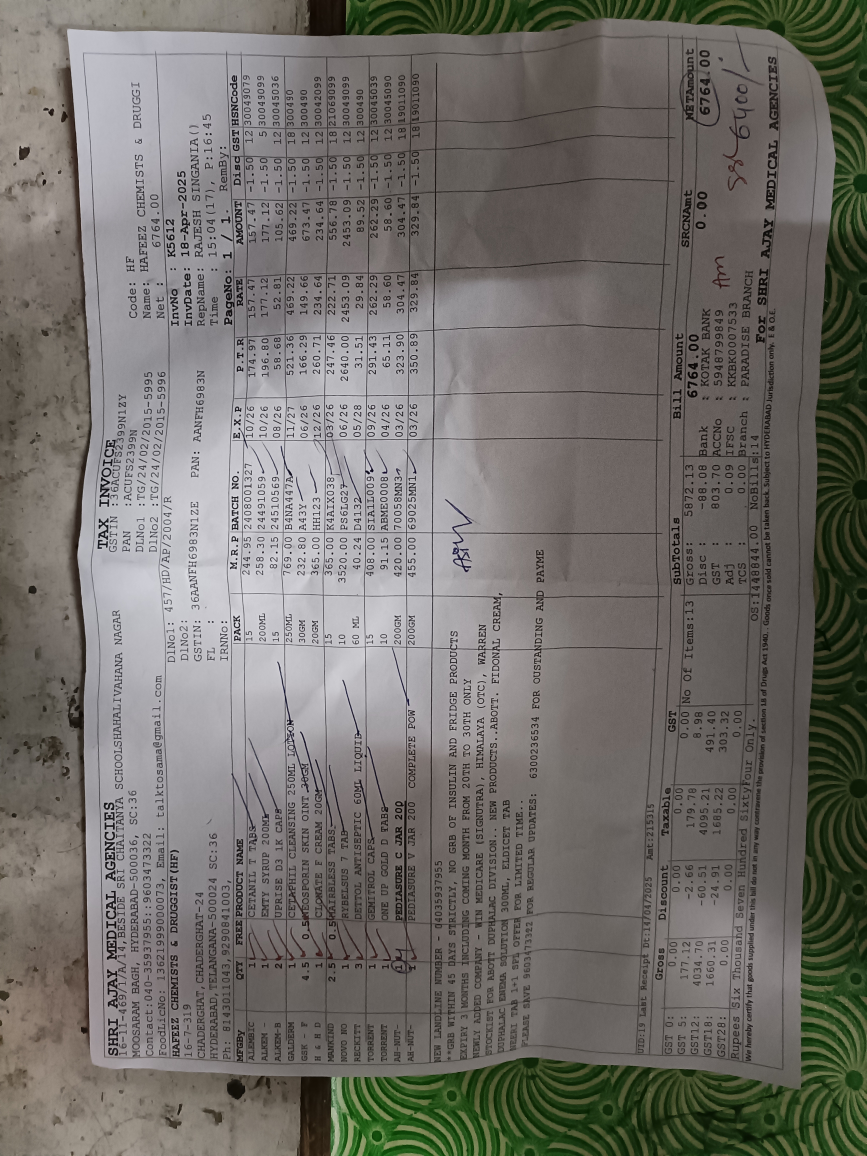 TAX INVOICE
SHRI AJAY MEDICAL AGENCIES
16-11-469/17/A/14,BESIDE SRI CHAITANYA SCHOOLSHAHALIVAHANA NAGAR
MOOSARAM BAGH, HYDERABAD-500036, SC:36
Contact:040-35937955::9603473322
FoodLicNo: 13621999000073, Email: talktosama@gmail.com
GSTIN :36ACUFS2399N1ZY
PAN :ACUFS2399N
DLNo1 :TG/24/02/2015-5995
DlNo2 :TG/24/02/2015-5996
Code: HF
Name: HAFEEZ CHEMISTS & DRUGGI
Net : 6764.00
HAFEEZ CHEMISTS & DRUGGIST(HF)
16-7-319
CHADERGHAT,CHADERGHAT-24
HYDERABAD,TELANGANA-500024 SC:36
Ph: 8143011043,9290841003.
DlNo1: 457/HD/AP/2004/R
DlNo2:
GSTIN: 36AANFH6983N1ZE PAN: AANFH6983N
FL :
IRNNo:
InvNo : K5612
InvDate: 18-Apr-2025
RepName: RAJESH SINGANIA()
Time : 15:04(17), P:16:45
PageNo: 1 / 1. RemBy:
MFGBY QTY FREE PRODUCT NAME PACK M.R.P BATCH NO. E.X.P P.T.R RATE AMOUNT Disc GST HSNCode
ALEMBIC 1 CETANIL T TABS 15 244.95 2408001327 10/26 174.97 157.47 157.47 -1.50 12 30049079
ALKEM - 1 EMTY SYRUP 200ML 200ML 258.30 24491059 10/26 196.80 177.12 177.12 -1.50 5 30049099
ALKEM-B 2 UPRISE D3 1K CAPS 15 82.15 24510569 08/26 58.68 52.81 105.62 -1.50 12 30045036
GALDERM 1 CETAPHIL CLEANSING 250ML LOTION 250ML 769.00 B4NA447A 11/27 521.36 469.22 469.22 -1.50 18 300490
GSK - F 4.5 0.5 NEOSPORIN SKIN OINT 30GM 30GM 232.80 A43Y 06/26 166.29 149.66 673.47 -1.50 12 300490
H & H D 1 CLOMATE F CREAM 20GM 20GM 365.00 HH123 12/26 260.71 234.64 234.64 -1.50 12 30042099
MANKIND 2.5 0.5 HAIRBLESS TABS 15 365.00 K4AIX038 03/26 247.46 222.71 556.78 -1.50 18 21069099
NOVO NO 1 RYBELSUS 7 TAB 10 3520.00 PS6LG27 06/26 2640.00 2453.09 2453.09 -1.50 12 30049099
RECEITT 3 DETTOL ANTISEPTIC 60ML LIQUID 60 ML 40.24 D4132 05/28 31.51 29.84 89.52 -1.50 12 300490
TORRENT 1 GEMITROL CAPS 15 408.00 SIA1L009 09/26 291.43 262.29 262.29 -1.50 12 30045039
TORRENT 1 ONE UP GOLD D TABS 10 91.15 ABNE0008 04/26 65.11 58.60 58.60 -1.50 12 30045090
AH-NUT- 1 PEDIASURE C JAR 200 200GM 420.00 70058MN3 03/26 323.90 304.47 304.47 -1.50 18 19011090
AH-NUT- 1 PEDIASURE V JAR 200 COMPLETE POW 200GM 455.00 69025MN1 03/26 350.89 329.84 329.84 -1.50 18 19011090
NEW LANDLINE NUMBER - 04035937955
**GRB WITHIN 45 DAYS STRICTLY, NO GRB OF INSULIN AND FRIDGE PRODUCTS
EXPIRY 3 MONTHS INCLUDING COMING MONTH FROM 20TH TO 30TH ONLY
NEWLY ADDED COMPANY - WIN MEDICARE (SIGNUTRA), HIMALAYA (OTC), WARREN
STOCKIST FOR ABOTT DUPHALAC DIVISION.. NEW PRODUCTS..ABOTT. FIDONAL CREAM,
DUPHALAC ENEMA SOLUTION 300ML, ELDICET TAB
NEERI TAB 1+1 SPL OFFER FOR LIMITED TIME..
PLEASE SAVE 9603473322 FOR REGULAR UPDATES: 6300236534 FOR OUSTANDING AND PAYME
UID:19 Last Receipt Dt:14/04/2025 Amt:215315
Gross Discount Taxable GST
GST 0: 0.00 0.00 0.00 0.00
GST 5: 177.12 -2.66 179.78 8.98
GST12: 4034.70 -60.51 4095.21 491.40
GST18: 1660.31 -24.91 1685.22 303.32
GST28: 0.00 0.00 0.00 0.00
No Of Items:13
SubTotals
Gross: 5872.13
Disc : -88.08
GST : 803.70
Adj : 0.09
TCS : 0.00
Bill Amount SRCNAmt NETAmount
6764.00 0.00 6764.00
Bank : KOTAK BANK
ACCNo : 5948799849
IFSC : KKBK0007533
Branch : PARADISE BRANCH
6400/-
Rupees Six Thousand Seven Hundred SixtyFour Only. OS:1448844.00 NoBills:14
For SHRI AJAY MEDICAL AGENCIES
We hereby certify that goods supplied under this bill do not in any way contravene the provision of section 18 of Drugs Act 1940. Goods once sold cannot be taken back. Subject to HYDERABAD Jurisdiction only. E & O.E